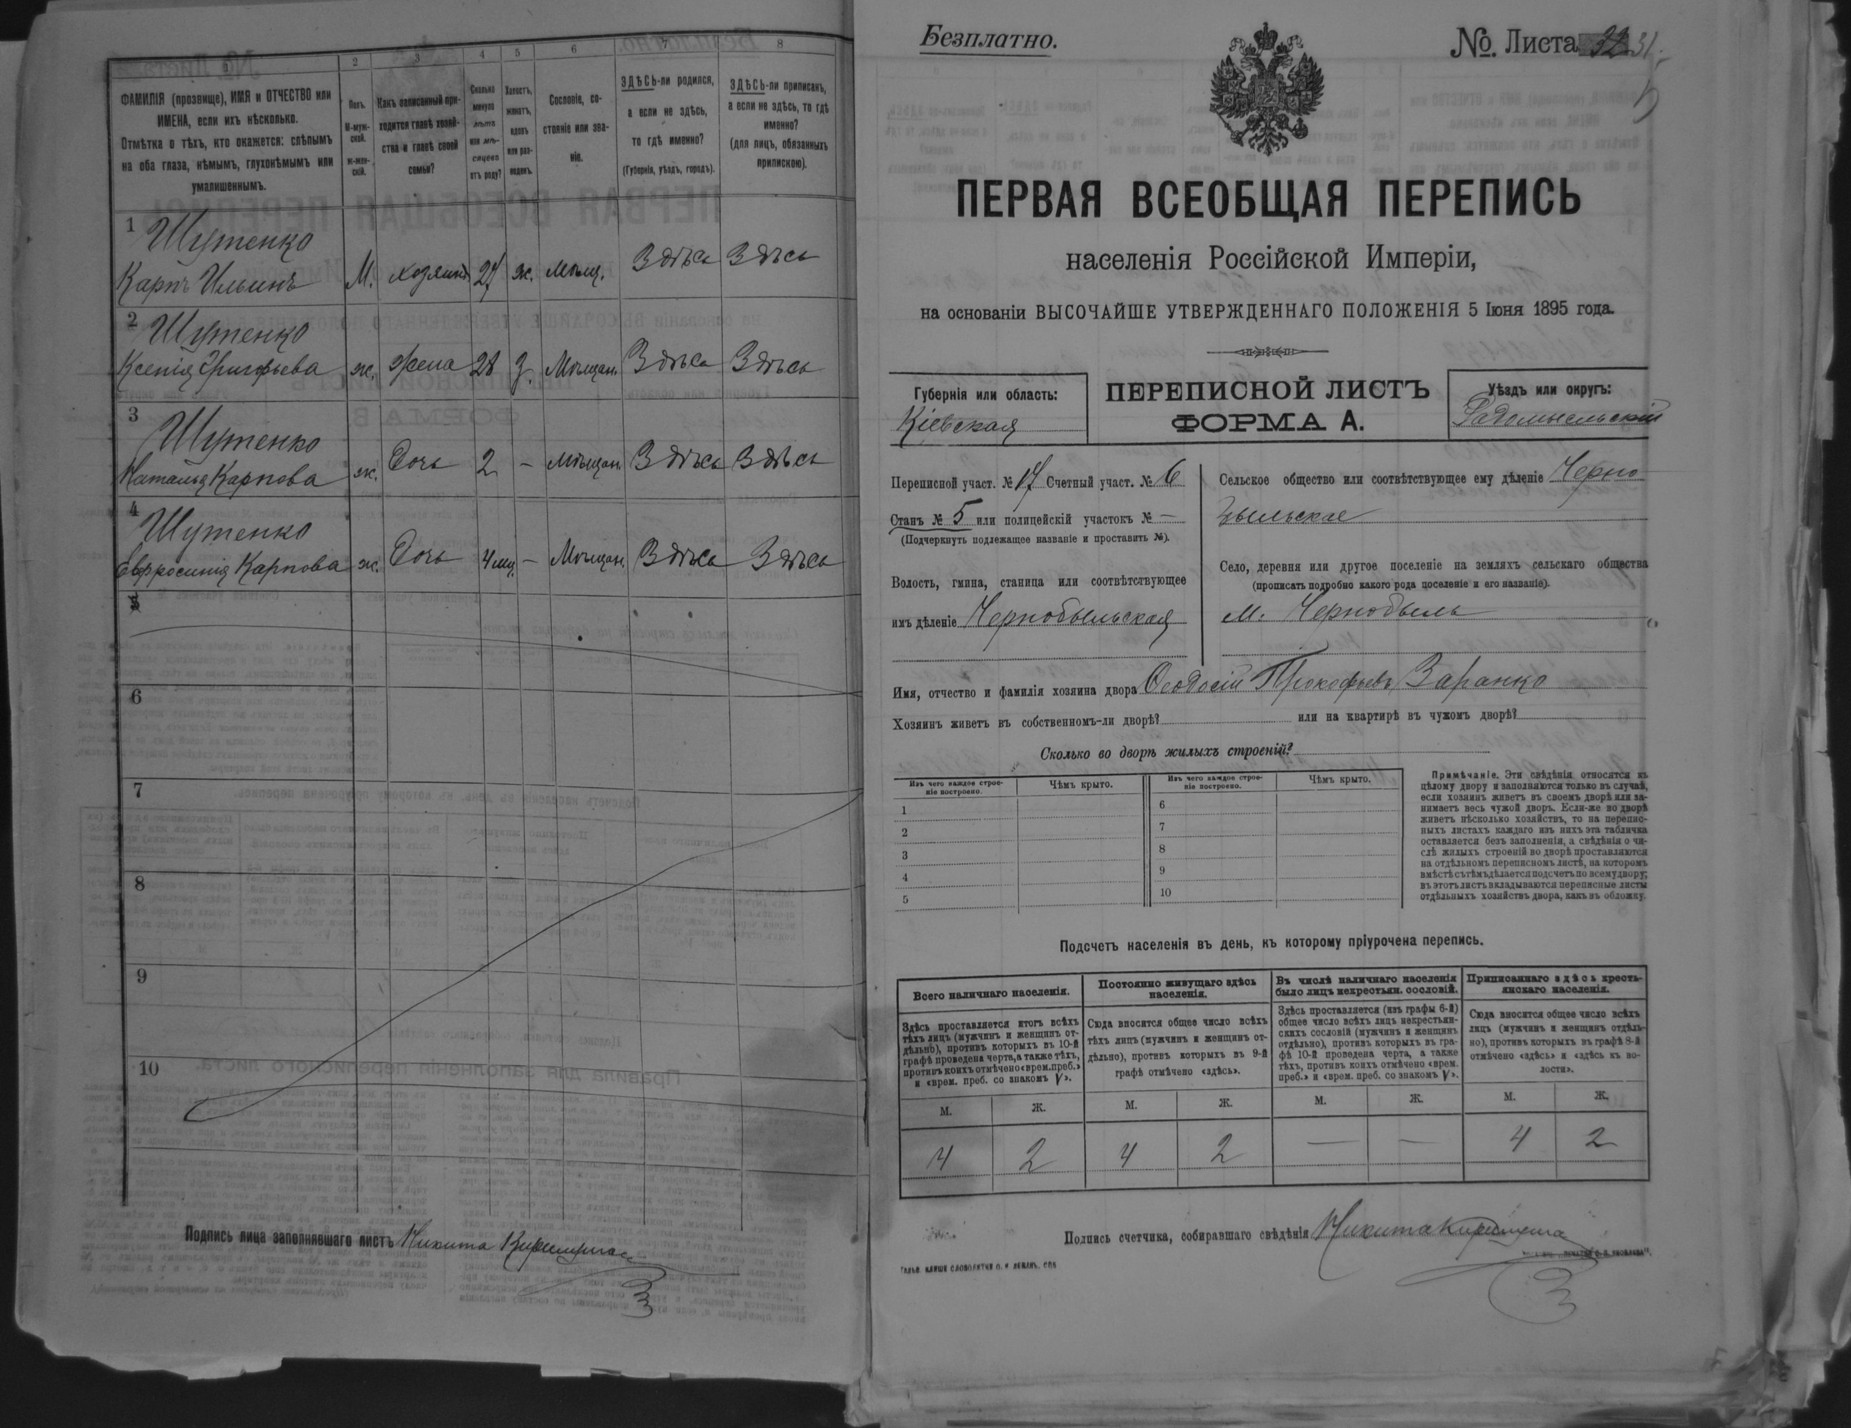 1 2 3 4 5 6 7 8
ФАМИЛІЯ (прозвище), ИМЯ и ОТЧЕСТВО или ИМЕНА, если ихъ нѣсколько.
Отмѣтка о тѣхъ, кто окажется: слѣпымъ на оба глаза, нѣмымъ, глухонѣмымъ или умалишеннымъ.
Полъ. М-мужской. ж-женскій.
Какъ записанный приходится главѣ хозяйства и главѣ своей семьи?
Сколько минуло лѣтъ или мѣсяцевъ отъ роду?
Холостъ, женатъ, вдовъ или разведенъ.
Сословіе, состояніе или званіе.
ЗДѢСЬ-ли родился, а если не здѣсь, то гдѣ именно?
(Губернія, уѣздъ, городъ).
ЗДѢСЬ-ли приписанъ, а если не здѣсь, то гдѣ именно?
(для лицъ, обязанныхъ припискою).
1 Шутенко
Карпъ Ильинъ М. хозяинъ 27 ж. мѣщ. Здѣсь Здѣсь
2 Шутенко
Ксенія Григорьева ж. Жена 28 З. Мѣщан. Здѣсь Здѣсь
3 Шутенко
Наталья Карпова ж. Дочь 2 – Мѣщан. Здѣсь Здѣсь
4 Шутенко
Евфросинія Карпова ж. Дочь 4 мц. – Мѣщан. Здѣсь Здѣсь
6
7
8
9
10
Подпись лица заполнявшего листъ Никита
Безплатно.
№. Листа 32 31
ПЕРВАЯ ВСЕОБЩАЯ ПЕРЕПИСЬ
населенія Россійской Имперіи,
на основаніи ВЫСОЧАЙШЕ УТВЕРЖДЕННАГО ПОЛОЖЕНІЯ 5 Іюня 1895 года.
Губернія или область:
Кіевская
ПЕРЕПИСНОЙ ЛИСТЪ
ФОРМА А.
Уѣздъ или округъ:
Радомысльскій
Переписной участ. № 17 Счетный участ. № 6
Станъ № 5 или полицейскій участокъ № —
(Подчеркнуть подлежащее названіе и проставить №).
Волость, гмина, станица или соотвѣтствующее
имъ дѣленіе Чернобыльская
Сельское общество или соотвѣтствующее ему дѣленіе Черно
быльское
Село, деревня или другое поселеніе на земляхъ сельскаго общества
(прописать подробно какого рода поселеніе и его названіе).
м. Чернобыль
Имя, отчество и фамилія хозяина двора Ѳеодосій Прокофьевъ Заранко
Хозяинъ живетъ въ собственномъ-ли дворѣ? или на квартирѣ въ чужомъ дворѣ?
Сколько во дворѣ жилыхъ строеній?
Изъ чего каждое строеніе построено. Чѣмъ крыто. Изъ чего каждое строеніе построено. Чѣмъ крыто.
1 6
2 7
3 8
4 9
5 10
Примѣчаніе. Эти свѣдѣнія относятся къ
цѣлому двору и заполняются только въ случаѣ,
если хозяинъ живетъ въ своемъ дворѣ или за-
нимаетъ весь чужой дворъ. Если-же во дворѣ
живетъ нѣсколько хозяйствъ, то на перепис-
ныхъ листахъ каждаго изъ нихъ эта табличка
оставляется безъ заполненія, а свѣдѣнія о чи-
слѣ жилыхъ строеній во дворѣ проставляются
на отдѣльномъ переписномъ листѣ, на которомъ
вмѣстѣ съ тѣмъ дѣлается подсчетъ по всему двору;
въ этотъ листъ вкладываются переписные листы
отдѣльныхъ хозяйствъ двора, какъ въ обложку.
Подсчетъ населенія въ день, къ которому пріурочена перепись.
Всего наличнаго населенія.
Здѣсь проставляется итогъ всѣхъ
тѣхъ лицъ (мужчинъ и женщинъ от-
дѣльно), противъ которыхъ въ 10-й
графѣ проведена черта, а также тѣхъ,
противъ коихъ отмѣчено «врем. преб.»
и «врем. преб. со знакомъ V».
Постоянно живущаго здѣсь населенія.
Сюда вносится общее число всѣхъ
тѣхъ лицъ (мужчинъ и женщинъ от-
дѣльно), противъ которыхъ въ 9-й
графѣ отмѣчено «здѣсь».
Въ числѣ наличнаго населенія было лицъ некрестьян. сословій.
Здѣсь проставляется (изъ графы 6-й)
общее число всѣхъ лицъ некрестьян-
скихъ сословій (мужчинъ и женщинъ
отдѣльно), противъ которыхъ въ гра-
фѣ 10-й проведена черта, а также
тѣхъ, противъ коихъ отмѣчено «врем.
преб.» и «врем. преб. со знакомъ V».
Приписаннаго здѣсь кресть-
янскаго населенія.
Сюда вносится общее число всѣхъ
лицъ (мужчинъ и женщинъ отдѣль-
но), противъ которыхъ въ графѣ 8-й
отмѣчено «здѣсь» и «здѣсь къ во-
лости».
М. Ж. М. Ж. М. Ж. М. Ж.
4 2 4 2 — — 4 2
Подпись счетчика, собиравшаго свѣдѣнія Никита